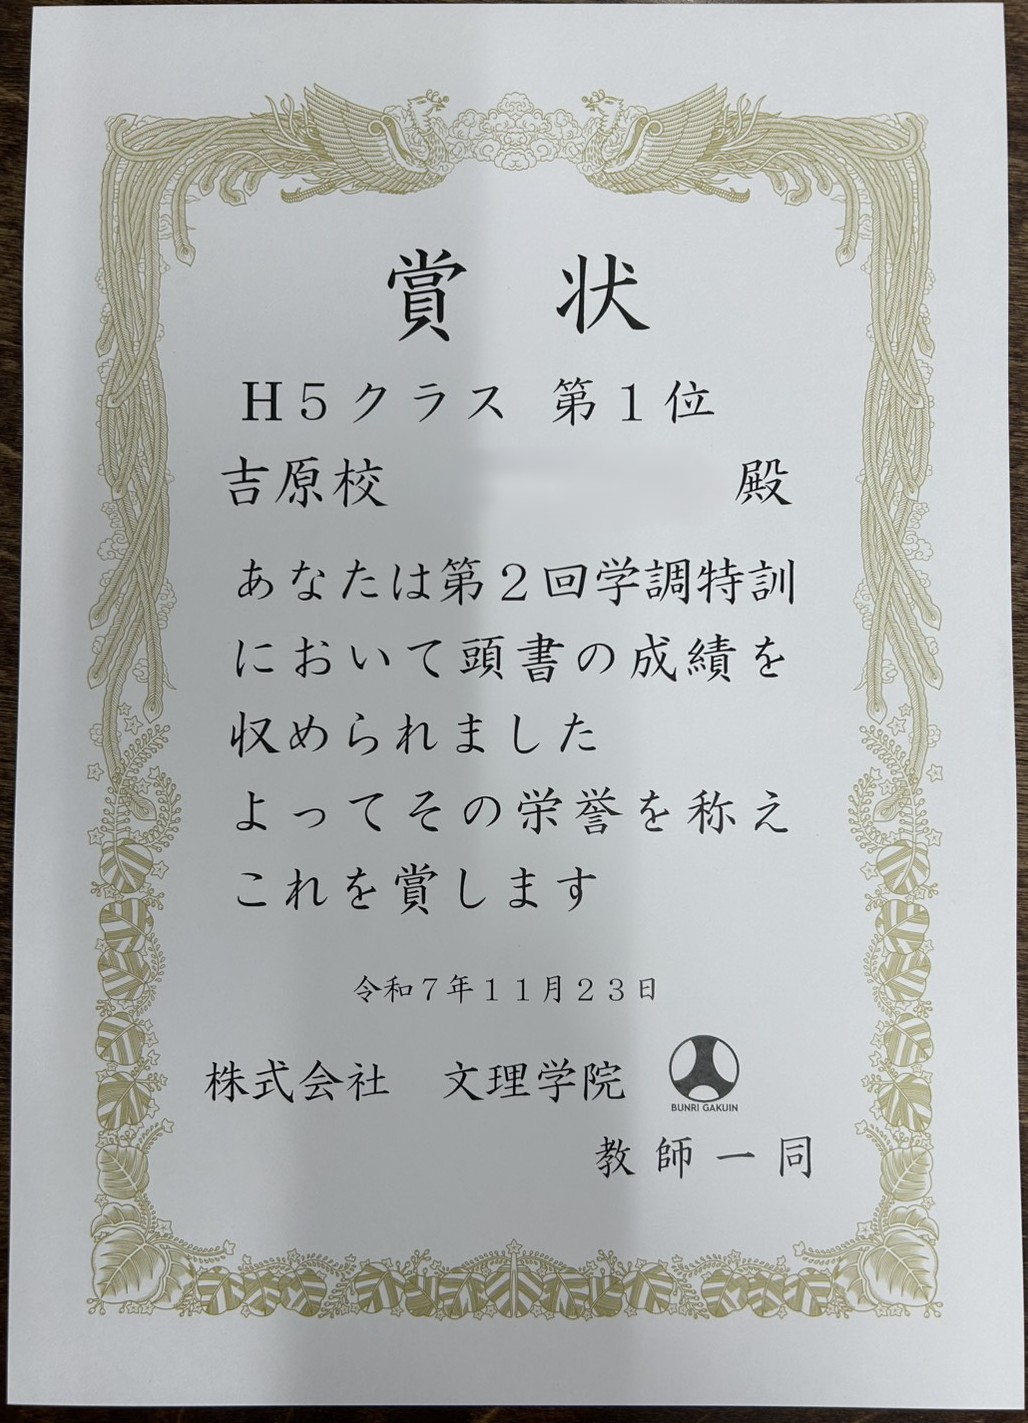 賞 状
H5クラス 第1位
吉原校 殿
あなたは第2回学調特訓
において頭書の成績を
収められました
よってその栄誉を称え
これを賞します
令和7年11月23日
株式会社 文理学院
BUNRI GAKUIN
教師一同